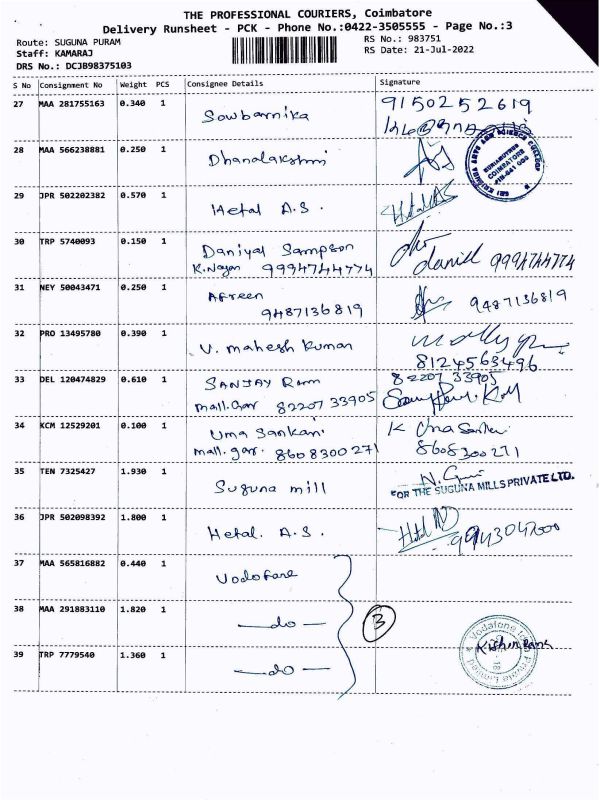 THE PROFESSIONAL COURIERS, Coimbatore
Delivery Runsheet - PCK - Phone No.:0422-3505555 - Page No.:3
Route: SUGUNA PURAM
RS No.: 983751
Staff: KAMARAJ
RS Date: 21-Jul-2022
DRS No.: DCJB98375103
S No Consignment No Weight PCS Consignee Details Signature
27 MAA 281755163 0.340 1 Sowbarnika 9150252619
28 MAA 566238881 0.250 1 Dhanalakshmi
SRI KRISHNA ARTS AND SCIENCE COLLEGE
COIMBATORE
29 JPR 502202382 0.570 1 Hetal A.S. Hetal AS
30 TRP 5740093 0.150 1 Daniyal Sampson
K.Nagar 9994744774 daniel 9994744774
31 NEY 50043471 0.250 1 Afreen
9487136819 9487136819
32 PRO 13495780 0.390 1 V. mahesh kumar
8124563496
33 DEL 120474829 0.610 1 SANJAY Ram 82207 33905
mall.Gar 82207 33905
34 KCM 12529201 0.100 1 Uma Sankari K Uma Sankari
mall.gar. 8608300271 8608300271
35 TEN 7325427 1.930 1 Suguna mill
FOR THE SUGUNA MILLS PRIVATE LTD.
36 JPR 502098392 1.800 1 Hetal. A.S.
37 MAA 565816882 0.440 1 Vodofane
38 MAA 291883110 1.820 1 —do— 3
39 TRP 7779540 1.360 1 —do—
Vodafone Idea Private Limited